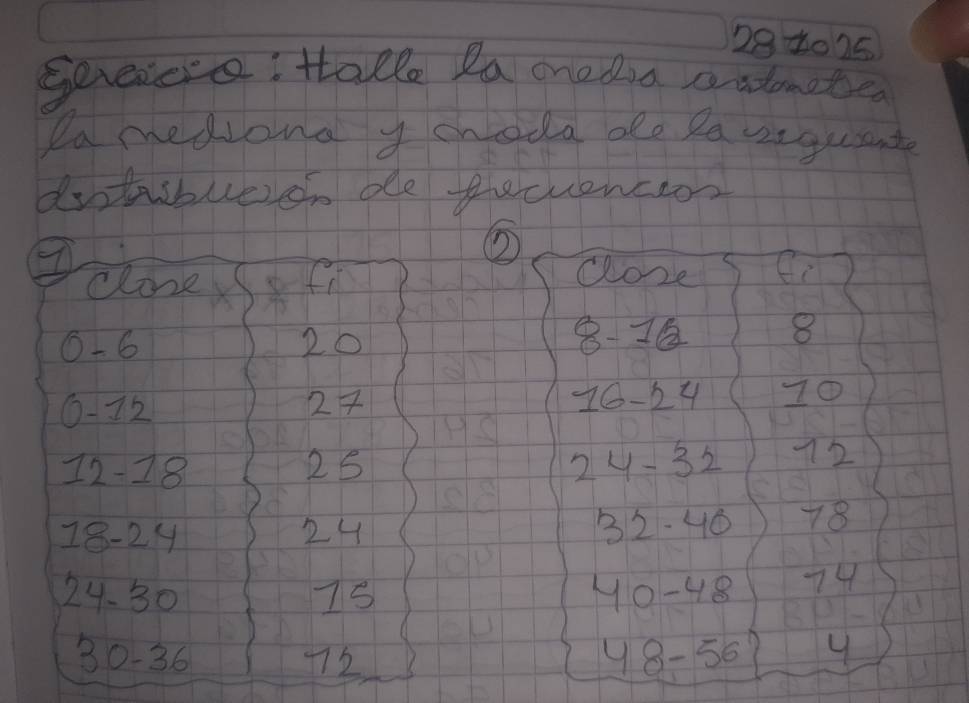 28 10 25
Ejercicio: Halle la media aritmetica
la mediana y moda de la siguiente
distribución de frecuencias
1 2
Clase fi Clase fi
0-6 20 8-16 8
0-12 27 16-24 10
12-18 25 24-32 12
18-24 24 32-40 18
24-30 15 40-48 14
30-36 12 48-56 4